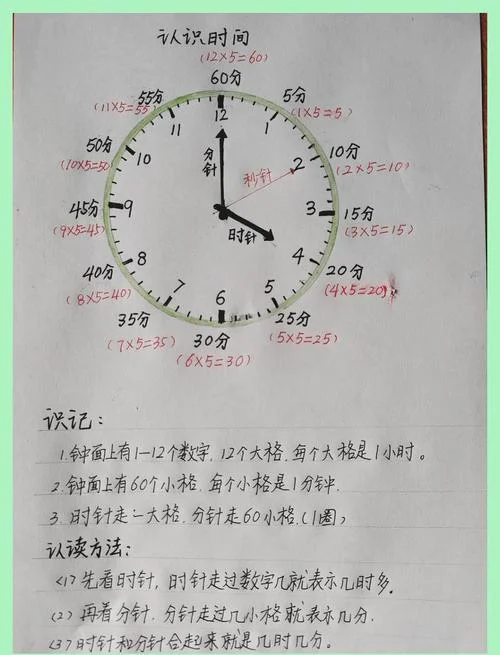 认识时间
(12×5=60)
60分
55分
(11×5=55)
5分
(1×5=5)
50分
(10×5=50)
10分
(2×5=10)
45分
(9×5=45)
15分
(3×5=15)
40分
(8×5=40)
20分
(4×5=20)
35分
(7×5=35)
30分
(6×5=30)
25分
(5×5=25)
12
1
2
3
4
5
6
7
8
9
10
11
分针
秒针
时针
识记:
1.钟面上有1—12个数字,12个大格,每个大格是1小时。
2.钟面上有60个小格,每个小格是1分钟.
3.时针走一大格,分针走60小格.(1圈)
认读方法:
<1>先看时针,时针走过数字几就表示几时多.
(2)再看分针.分针走过几小格就表示几分.
<3>时针和分针合起来就是几时几分。